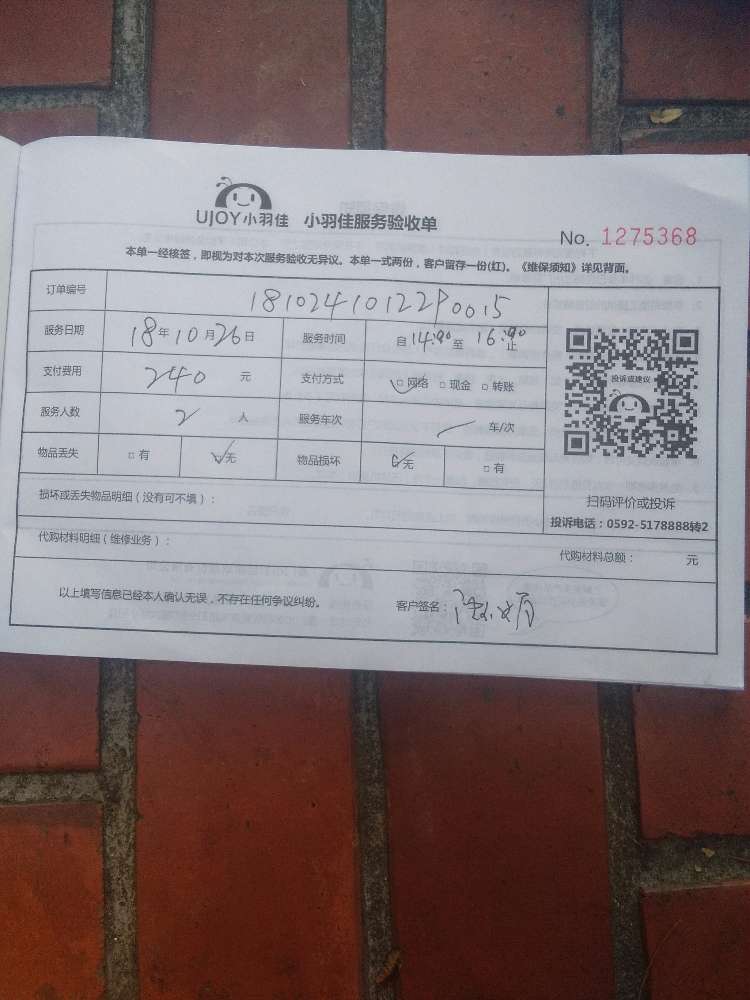 UJOY小羽佳 小羽佳服务验收单
No. 1275368
本单一经核签，即视为对本次服务验收无异议。本单一式两份，客户留存一份(红)。《维保须知》详见背面。
订单编号 1810241012290015
服务日期 18年10月26日 服务时间 自14:00至16:00止
支付费用 240 元 支付方式 □网络 □现金 □转账
投诉或建议
服务人数 2 人 服务车次 车/次
物品丢失 □有 □无 物品损坏 □无 □有
扫码评价或投诉
损坏或丢失物品明细（没有可不填）：
投诉电话：0592-5178888转2
代购材料明细（维修业务）： 代购材料总额： 元
以上填写信息已经本人确认无误，不存在任何争议纠纷。 客户签名：